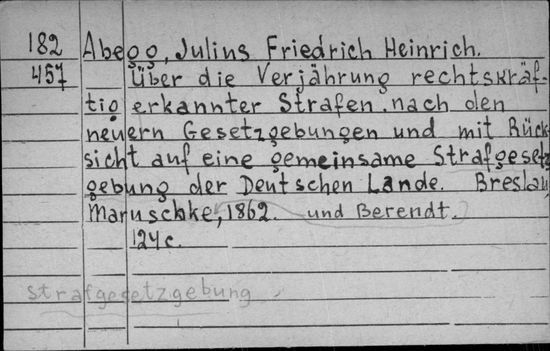 182 Abegg, Julius Friedrich Heinrich.
457 Über die Verjährung rechtskräf-
tig erkannter Strafen nach den
neuern Gesetzgebungen und mit Rück-
sicht auf eine gemeinsame Strafgesetz
gebung der Deutschen Lande. Breslau,
Maruschke, 1862. und Berendt.
124 c.
strafgesetzgebung